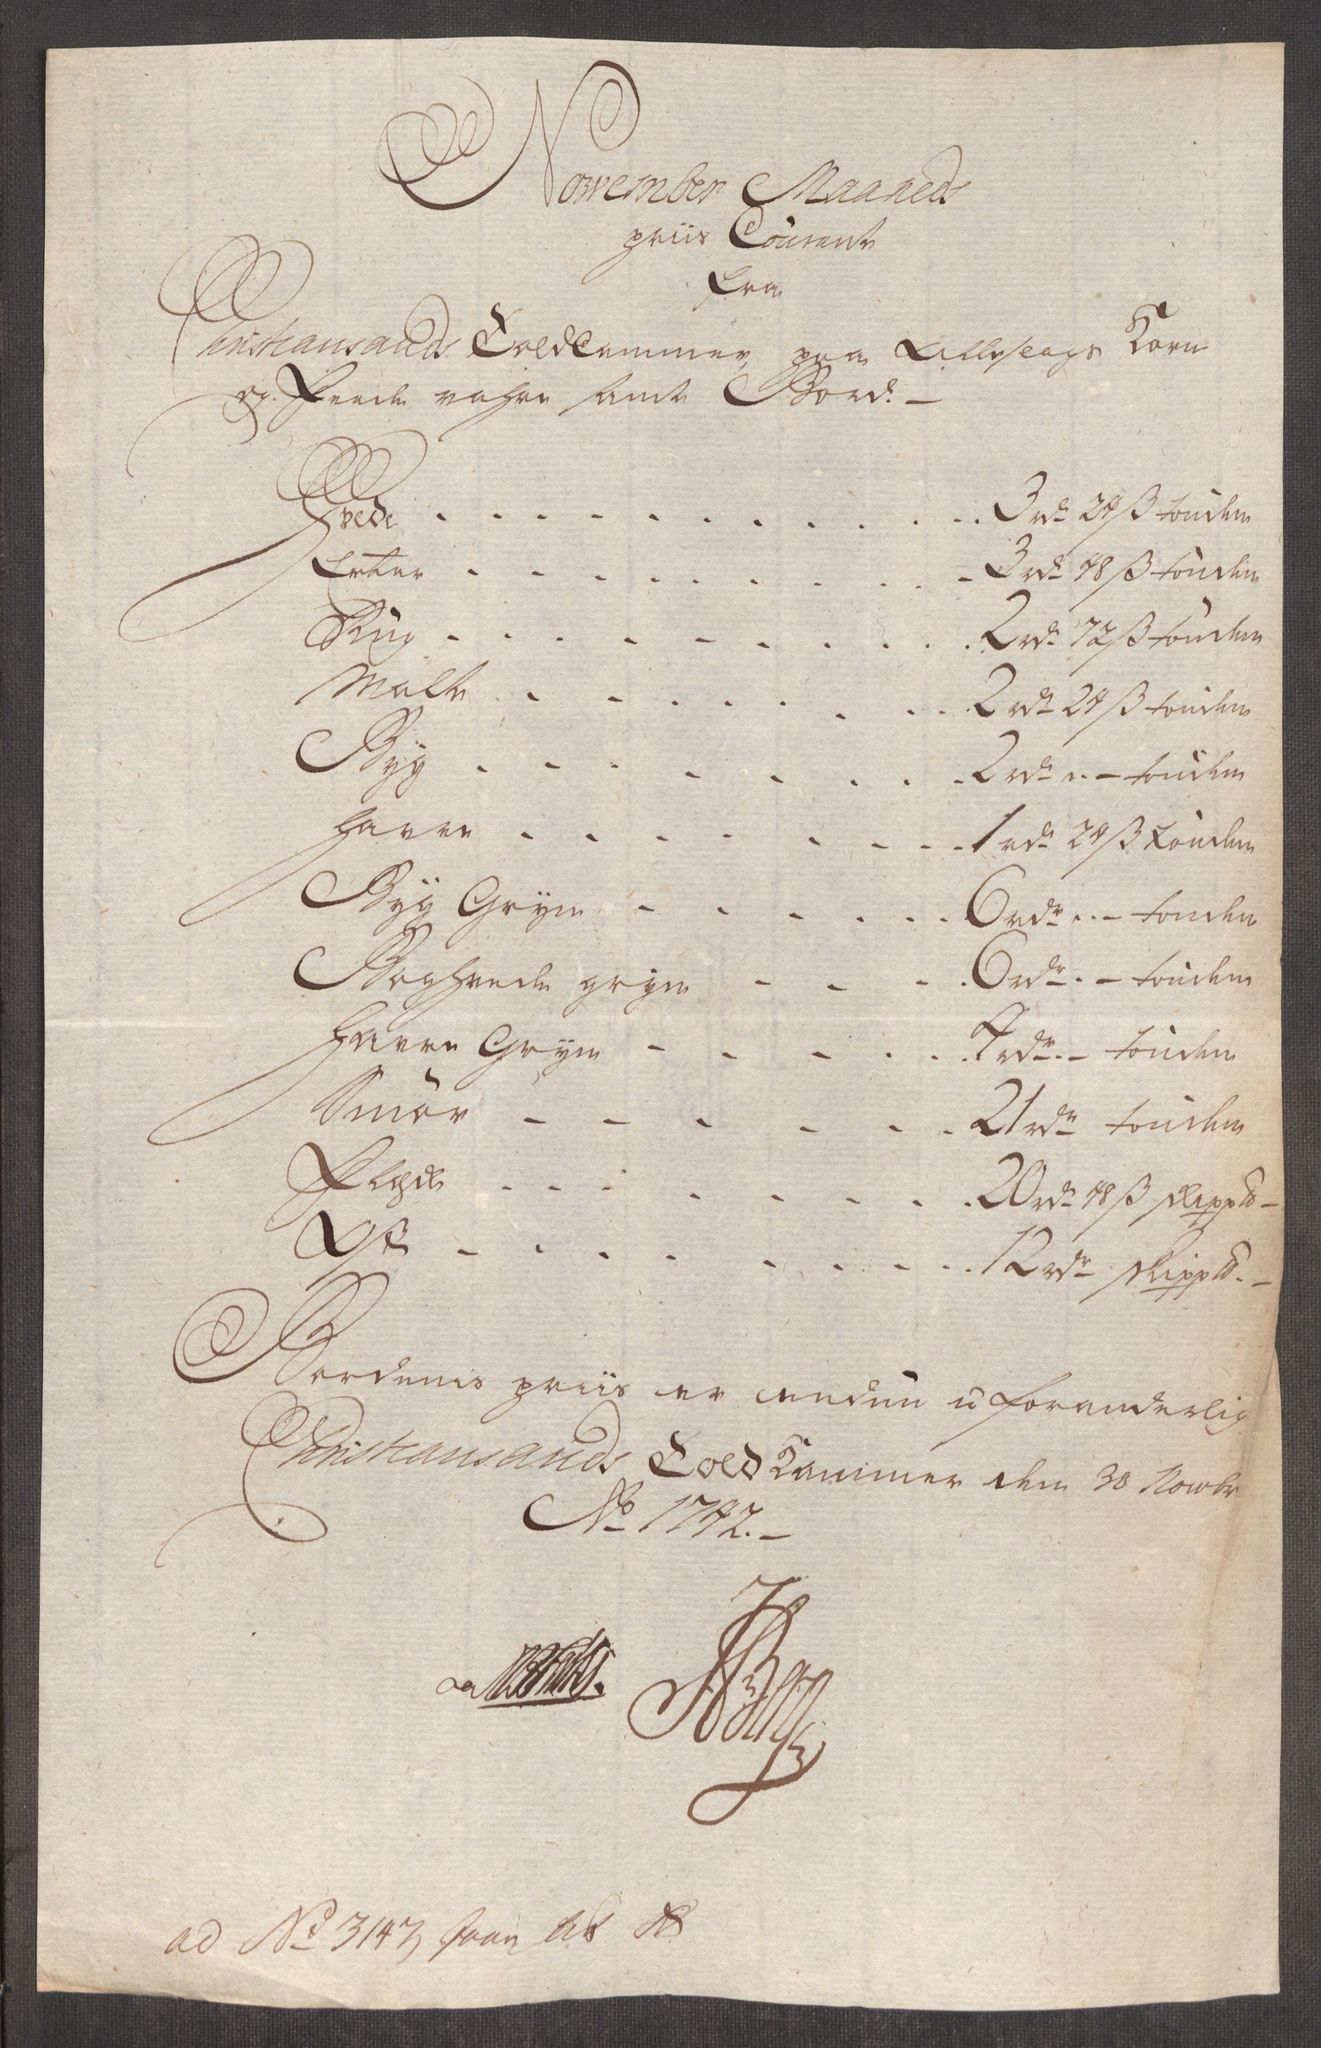 November Maaneds
priis Courant
fra
Christiansands Told Cammer, paa Korn
og Feede vahre samt Bord. —
Hvede . . . 3 rdr 24 ß tønden
Erter . . . 3 rdr 48 ß tønden
Rug . . . 2 rdr 72 ß tønden
Malt . . . 2 rdr 24 ß tønden
Byg . . . 2 rdr . — tønden
Havre . . . 1 rdr 24 ß tønden
Byg Gryn . . . 6 rdr . — tønden
Boghvede gryn . . . 6 rdr . — tønden
Havre Gryn . . . 4 rdr . — tønden
Smør . . . 21 rdr tønden
Flesk . . . 20 rdr 48 ß skipp℔ —
Ost . . . 12 rdr skipp℔. —
Bordenis priis er endnu uforanderlig
Christiansands Told Kammer den 30 Novbr
Ao 1742. —
ad No 3147